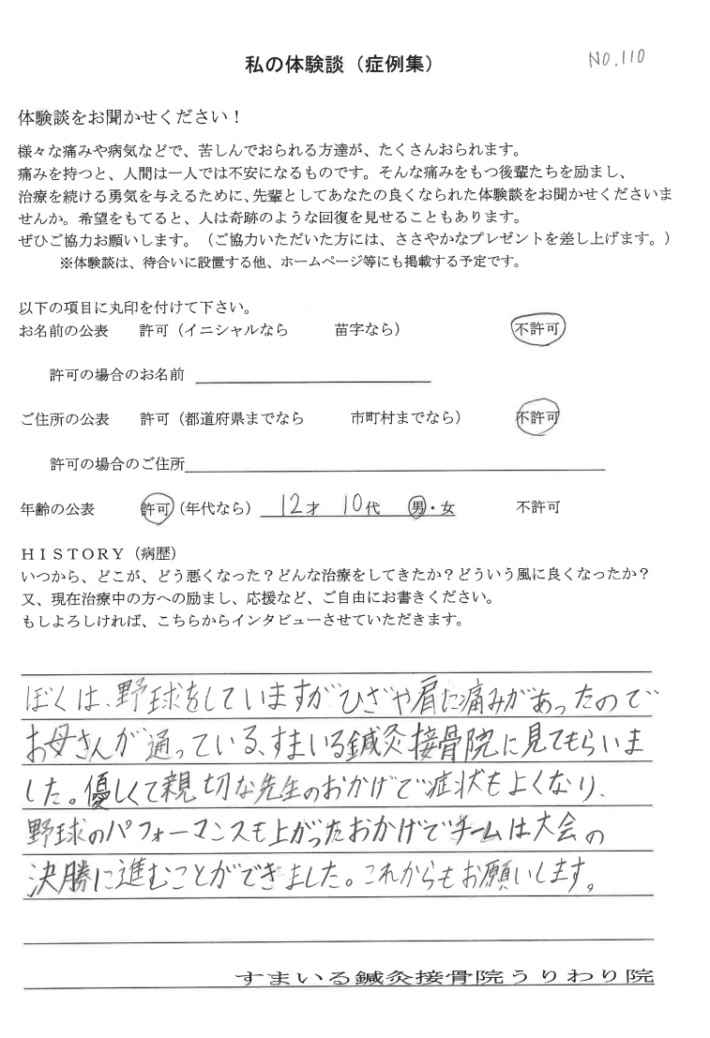 私の体験談（症例集）
NO.110
体験談をお聞かせください！
様々な痛みや病気などで、苦しんでおられる方達が、たくさんおられます。
痛みを持つと、人間は一人では不安になるものです。そんな痛みをもつ後輩たちを励まし、
治療を続ける勇気を与えるために、先輩としてあなたの良くなられた体験談をお聞かせくださいま
せんか。希望をもてると、人は奇跡のような回復を見せることもあります。
ぜひご協力お願いします。（ご協力いただいた方には、ささやかなプレゼントを差し上げます。）
※体験談は、待合いに設置する他、ホームページ等にも掲載する予定です。
以下の項目に丸印を付けて下さい。
お名前の公表 許可（イニシャルなら 苗字なら） 不許可
許可の場合のお名前
ご住所の公表 許可（都道府県までなら 市町村までなら） 不許可
許可の場合のご住所
年齢の公表 許可（年代なら） 12才 10代 男・女 不許可
ＨＩＳＴＯＲＹ（病歴）
いつから、どこが、どう悪くなった？どんな治療をしてきたか？どういう風に良くなったか？
又、現在治療中の方への励まし、応援など、ご自由にお書きください。
もしよろしければ、こちらからインタビューさせていただきます。
ぼくは、野球をしていますがひざや肩に痛みがあったので
お母さんが通っている、すまいる鍼灸接骨院に見てもらいま
した。優しくて親切な先生のおかげで症状もよくなり、
野球のパフォーマンスも上がったおかげでチームは大会の
決勝に進むことができました。これからもお願いします。
すまいる鍼灸接骨院うりわり院